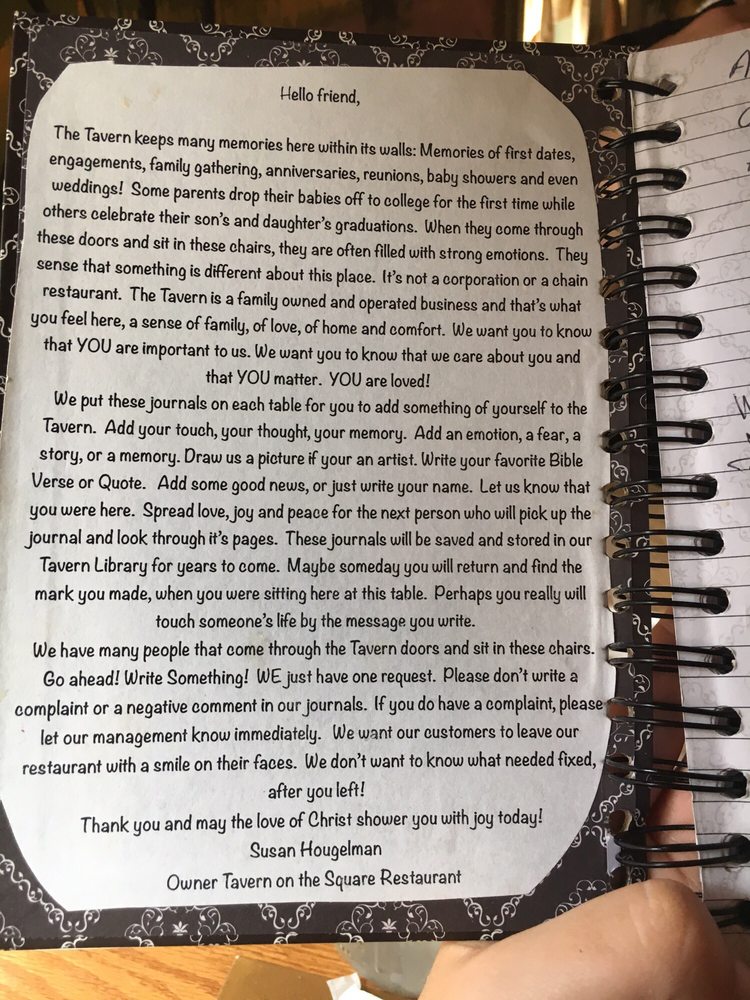 Hello friend,
The Tavern keeps many memories here within its walls: Memories of first dates,
engagements, family gathering, anniversaries, reunions, baby showers and even
weddings! Some parents drop their babies off to college for the first time while
others celebrate their son's and daughter's graduations. When they come through
these doors and sit in these chairs, they are often filled with strong emotions. They
sense that something is different about this place. It's not a corporation or a chain
restaurant. The Tavern is a family owned and operated business and that's what
you feel here, a sense of family, of love, of home and comfort. We want you to know
that YOU are important to us. We want you to know that we care about you and
that YOU matter. YOU are loved!
We put these journals on each table for you to add something of yourself to the
Tavern. Add your touch, your thought, your memory. Add an emotion, a fear, a
story, or a memory. Draw us a picture if your an artist. Write your favorite Bible
Verse or Quote. Add some good news, or just write your name. Let us know that
you were here. Spread love, joy and peace for the next person who will pick up the
journal and look through it's pages. These journals will be saved and stored in our
Tavern Library for years to come. Maybe someday you will return and find the
mark you made, when you were sitting here at this table. Perhaps you really will
touch someone's life by the message you write.
We have many people that come through the Tavern doors and sit in these chairs.
Go ahead! Write Something! WE just have one request. Please don't write a
complaint or a negative comment in our journals. If you do have a complaint, please
let our management know immediately. We want our customers to leave our
restaurant with a smile on their faces. We don't want to know what needed fixed,
after you left!
Thank you and may the love of Christ shower you with joy today!
Susan Hougelman
Owner Tavern on the Square Restaurant